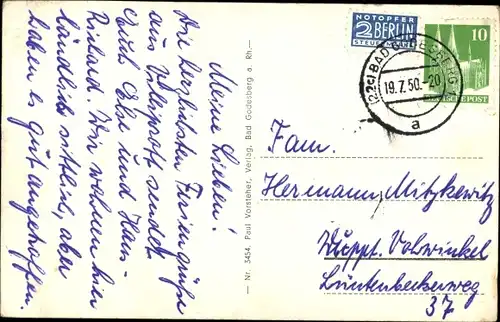 Meine Lieben!
Die herzlichsten Feriengrüße
aus Villiprott sendet
Euch Else und Hans-
Richard. Wir wohnen hier
ländlich sittlich, aber
haben es gut angetroffen.
Nr. 3454. Paul Vorsteher, Verlag, Bad Godesberg a. Rh.
NOTOPFER
2 BERLIN
STEUERMARKE
10
DEUTSCHE POST
(22c) BAD GODESBERG 1
19.7.50.-20
a
Fam.
Hermann Mitzkewitz
Wuppt. Vohwinkel
Lüntenbeckerweg
37